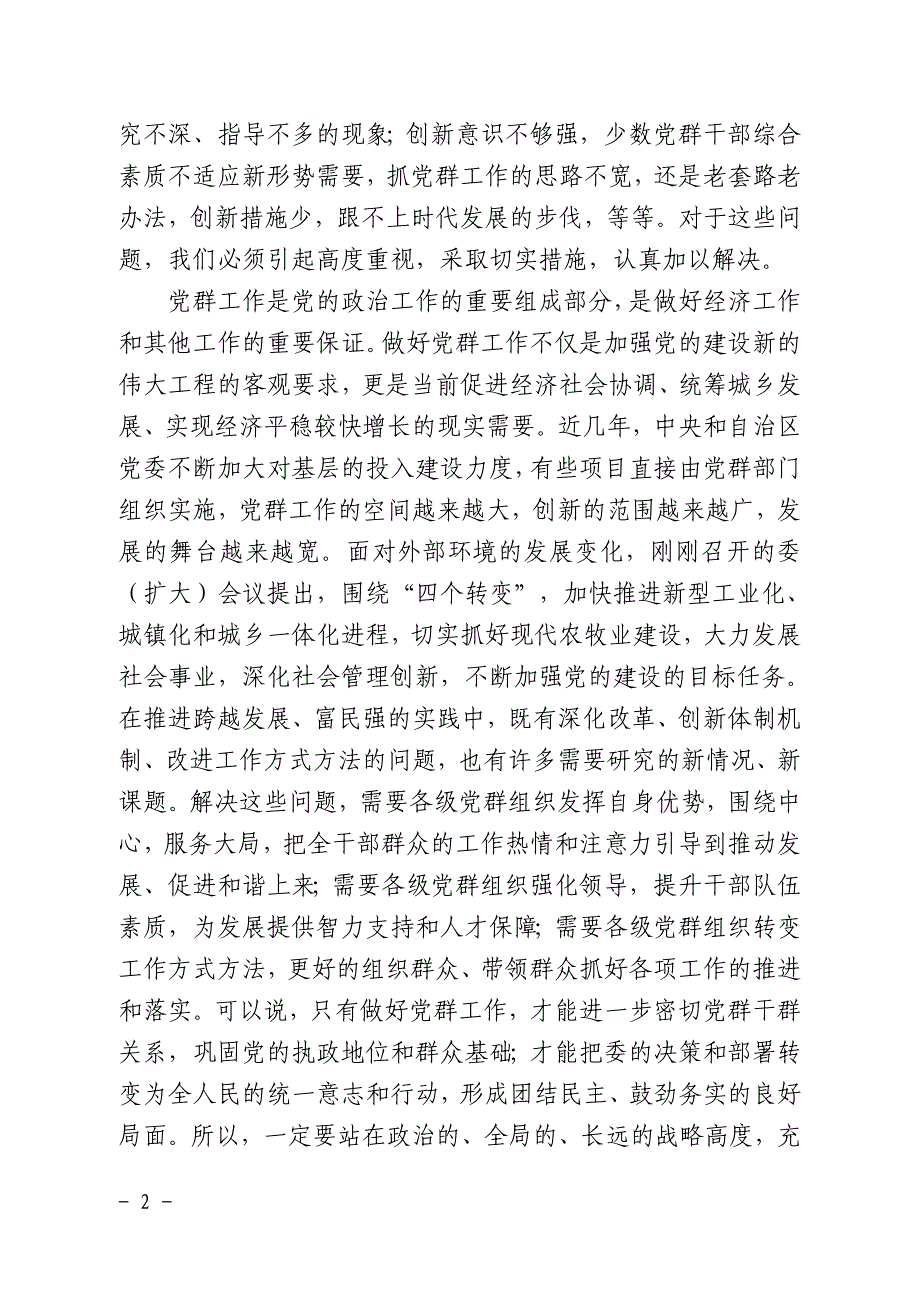 究不深、指导不多的现象；创新意识不够强，少数党群干部综合
素质不适应新形势需要，抓党群工作的思路不宽，还是老套路老
办法，创新措施少，跟不上时代发展的步伐，等等。对于这些问
题，我们必须引起高度重视，采取切实措施，认真加以解决。
党群工作是党的政治工作的重要组成部分，是做好经济工作
和其他工作的重要保证。做好党群工作不仅是加强党的建设新的
伟大工程的客观要求，更是当前促进经济社会协调、统筹城乡发
展、实现经济平稳较快增长的现实需要。近几年，中央和自治区
党委不断加大对基层的投入建设力度，有些项目直接由党群部门
组织实施，党群工作的空间越来越大，创新的范围越来越广，发
展的舞台越来越宽。面对外部环境的发展变化，刚刚召开的委
（扩大）会议提出，围绕“四个转变”，加快推进新型工业化、
城镇化和城乡一体化进程，切实抓好现代农牧业建设，大力发展
社会事业，深化社会管理创新，不断加强党的建设的目标任务。
在推进跨越发展、富民强的实践中，既有深化改革、创新体制机
制、改进工作方式方法的问题，也有许多需要研究的新情况、新
课题。解决这些问题，需要各级党群组织发挥自身优势，围绕中
心，服务大局，把全干部群众的工作热情和注意力引导到推动发
展、促进和谐上来；需要各级党群组织强化领导，提升干部队伍
素质，为发展提供智力支持和人才保障；需要各级党群组织转变
工作方式方法，更好的组织群众、带领群众抓好各项工作的推进
和落实。可以说，只有做好党群工作，才能进一步密切党群干群
关系，巩固党的执政地位和群众基础；才能把委的决策和部署转
变为全人民的统一意志和行动，形成团结民主、鼓劲务实的良好
局面。所以，一定要站在政治的、全局的、长远的战略高度，充
- 2 -